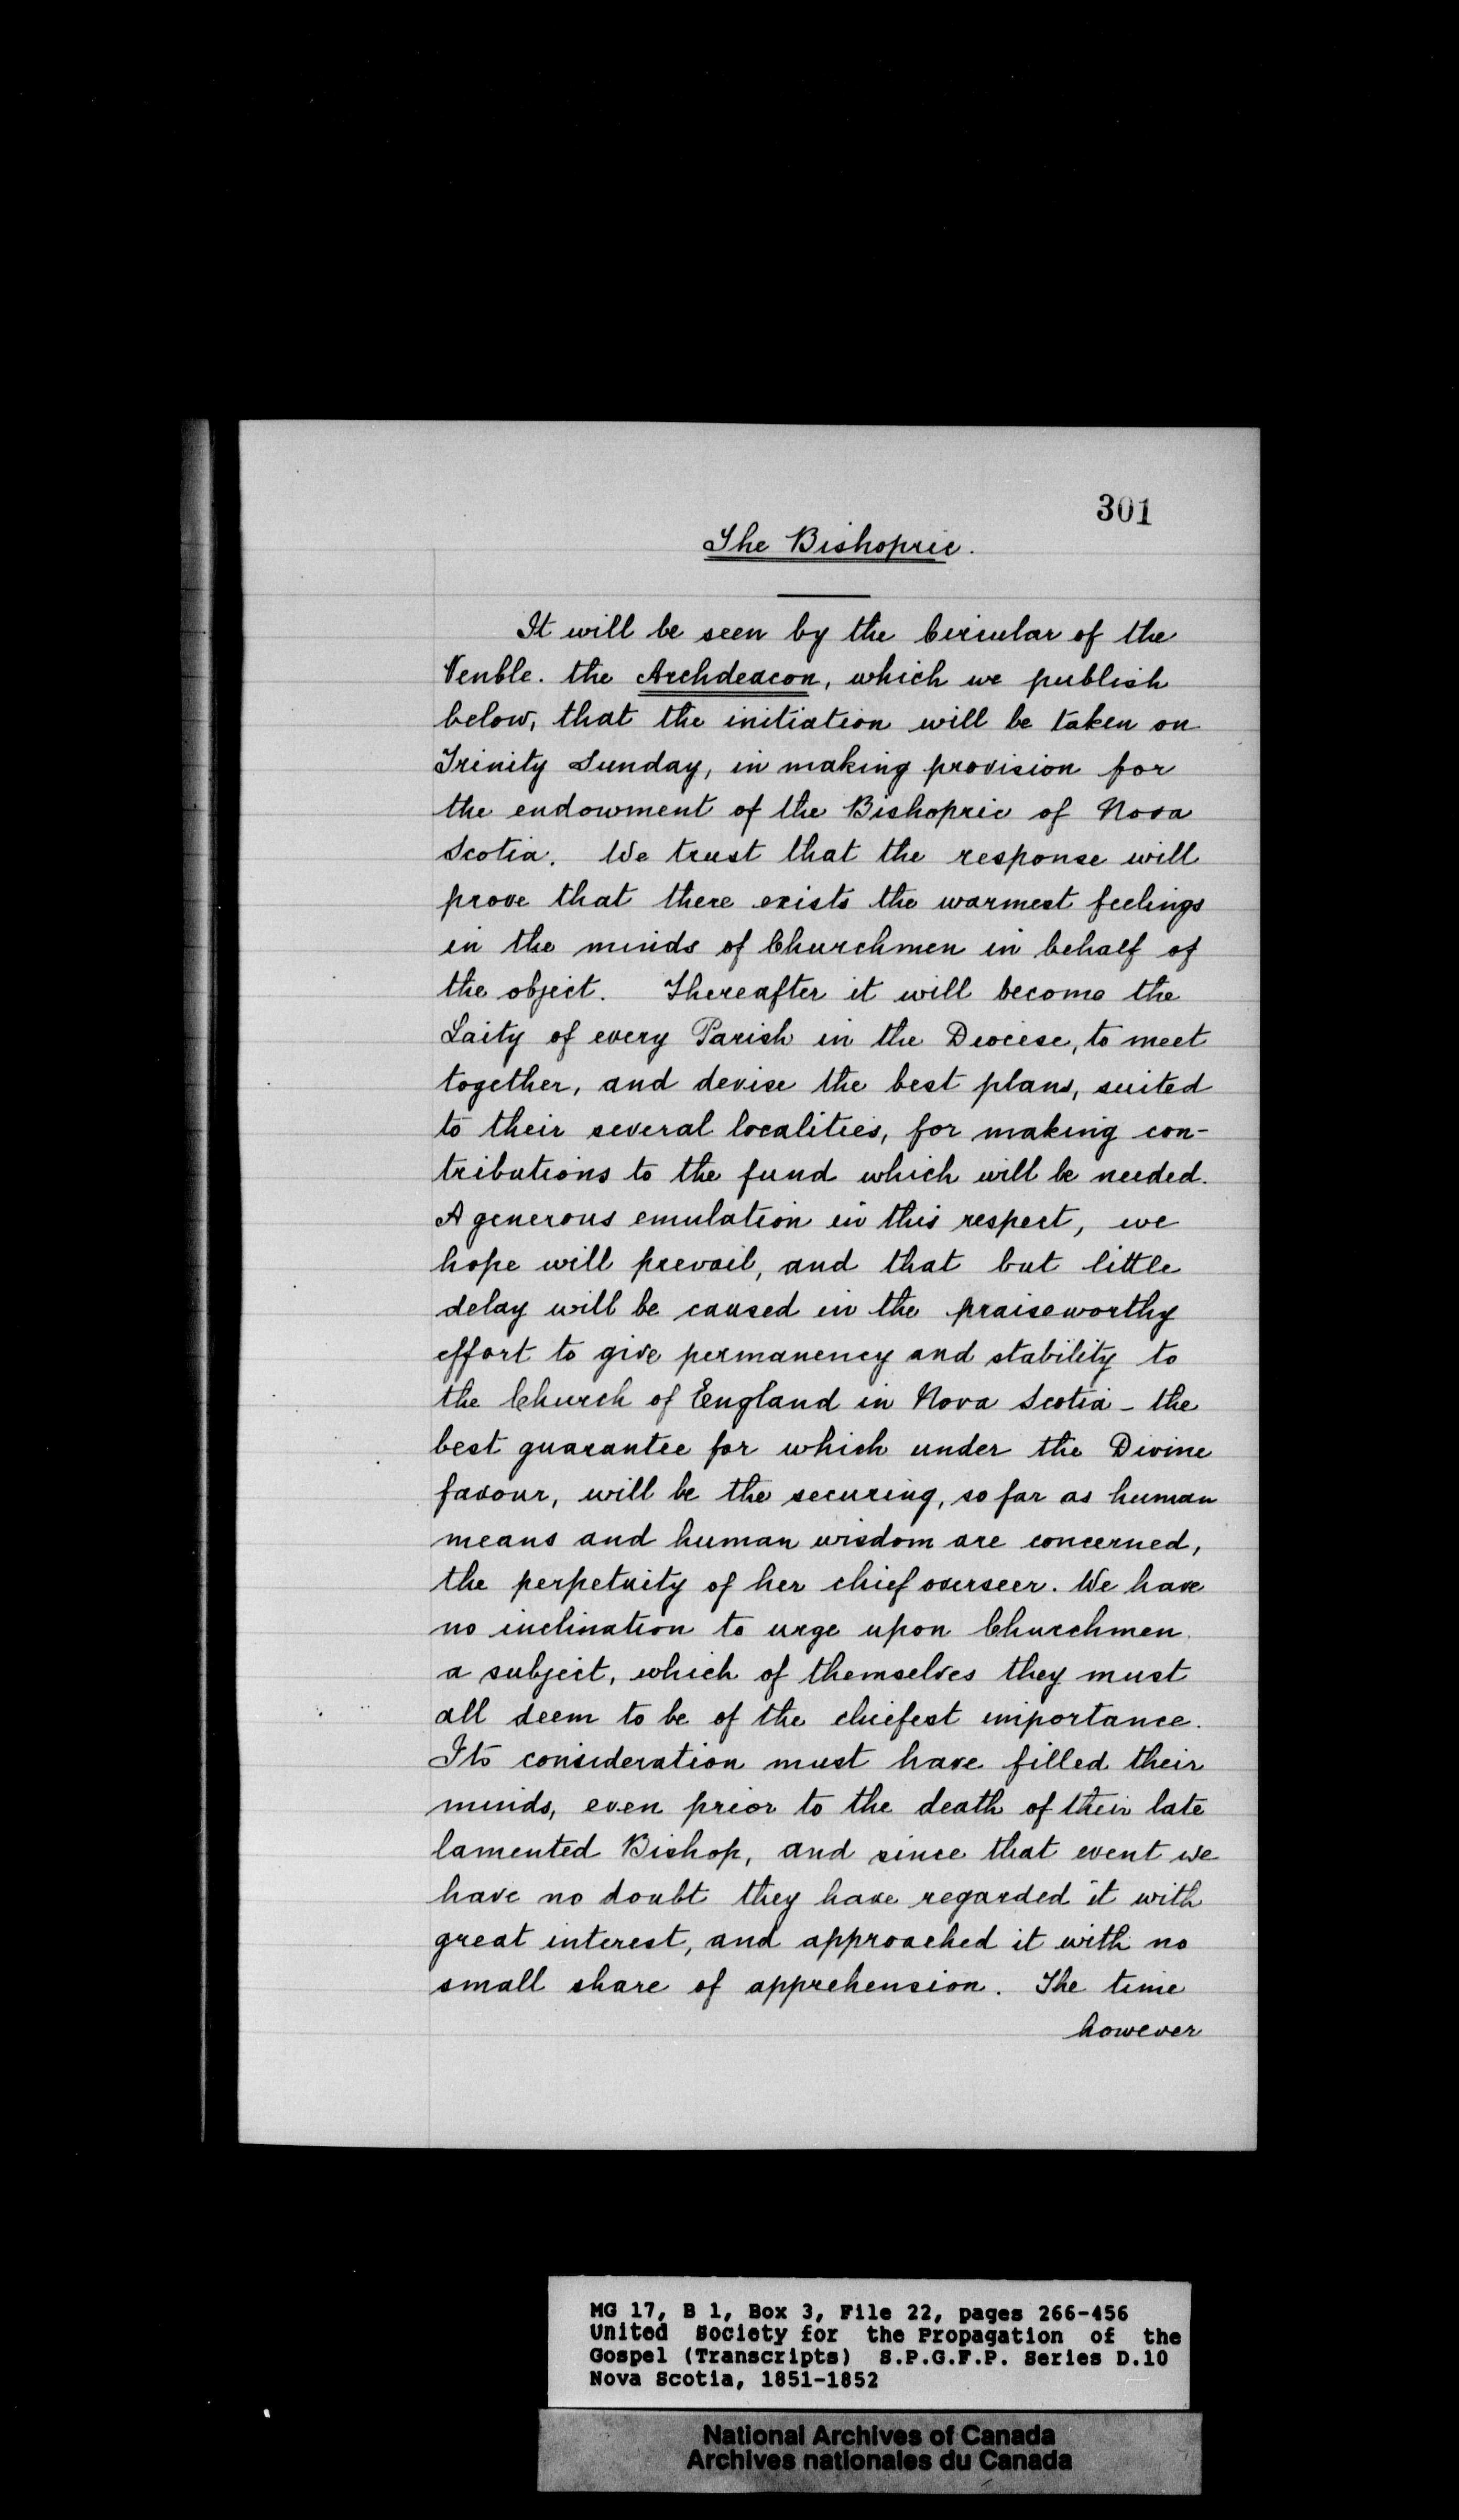 301
The Bishopric.
It will be seen by the Circular of the
Venble. the Archdeacon, which we publish
below, that the initiation will be taken on
Trinity Sunday, in making provision for
the endowment of the Bishopric of Nova
Scotia. We trust that the response will
prove that there exists the warmest feelings
in the minds of Churchmen in behalf of
the object. Thereafter it will become the
Laity of every Parish in the Diocese, to meet
together, and devise the best plans, suited
to their several localities, for making con-
tributions to the fund which will be needed.
A generous emulation in this respect, we
hope will prevail, and that but little
delay will be caused in the praiseworthy
effort to give permanency and stability to
the Church of England in Nova Scotia - the
best guarantee for which under the Divine
favour, will be the securing, so far as human
means and human wisdom are concerned,
the perpetuity of her chief overseer. We have
no inclination to urge upon Churchmen
a subject, which of themselves they must
all deem to be of the chiefest importance.
Its consideration must have filled their
minds, even prior to the death of their late
lamented Bishop, and since that event we
have no doubt they have regarded it with
great interest, and approached it with no
small share of apprehension. The time
however
MG 17, B 1, Box 3, File 22, pages 266-456
United Society for the Propagation of the
Gospel (Transcripts) S.P.G.F.P. Series D.10
Nova Scotia, 1851-1852
National Archives of Canada
Archives nationales du Canada